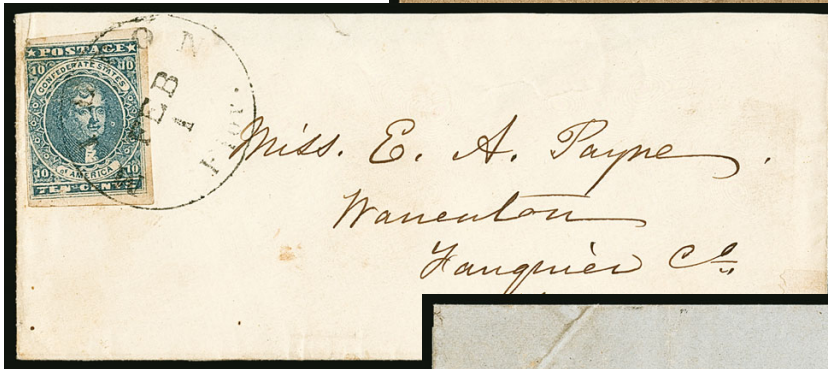 ★POSTAGE★
10 10
CONFEDERATE STATES
of AMERICA
10 10
TEN CENTS
FEB
1
Miss. E. A. Payne
Warrenton
Fauquier Co.